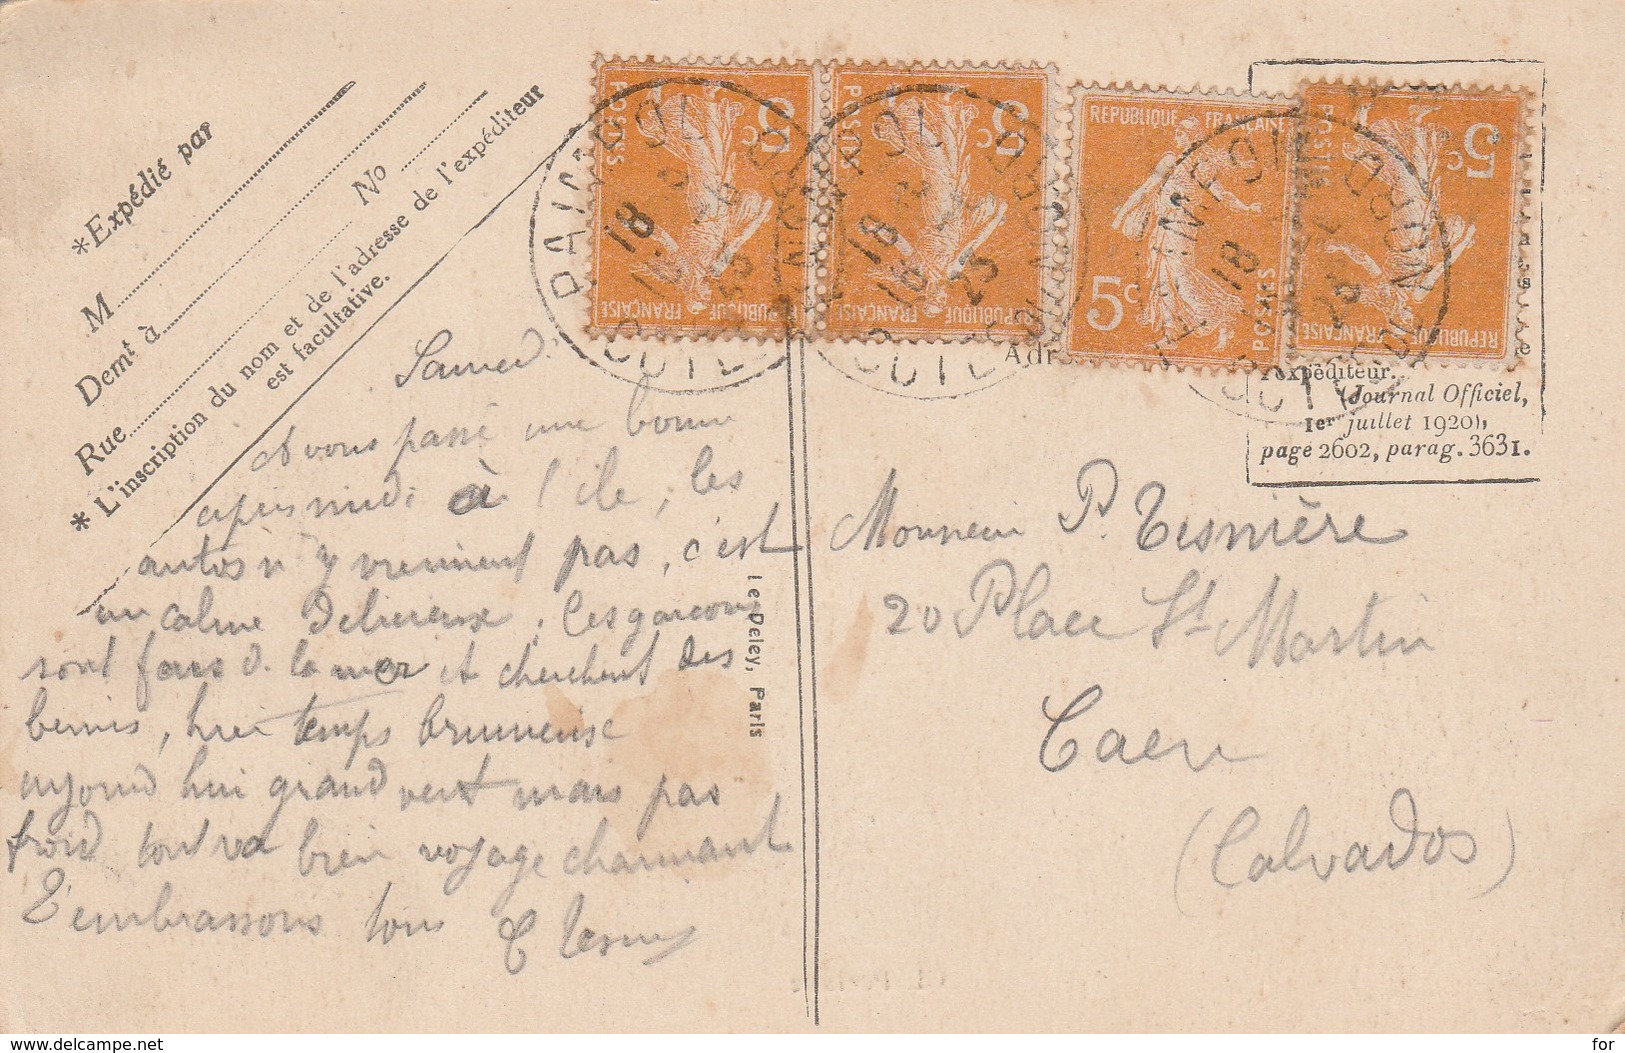 *Expédié par
M
Demt à
Rue No
* L'inscription du nom et de l'adresse de l'expéditeur
est facultative.
POSTES 5c REPUBLIQUE FRANÇAISE
POSTES 5c REPUBLIQUE FRANÇAISE
REPUBLIQUE FRANÇAISE 5c POSTES
POSTES 5c REPUBLIQUE FRANÇAISE
PAIMPOL
18
COTES DU NORD
Adr
l'expéditeur.
(Journal Officiel,
1er juillet 1920),
page 2602, parag. 3631.
Samedi
avons passé une bonne
après midi à l'île, les
autos n'y viennent pas, c'est
un calme délicieux, les garçons
sont fous d. la mer et cherchent des
bernis, hier temps brumeuse
aujourd hui grand vent mais pas
froid tout va bien voyage charmant
T'embrassons tous
Monsieur P. Tesnière
20 Place St Martin
Caen
(Calvados)
Le Deley, Paris
delcampe.net
for